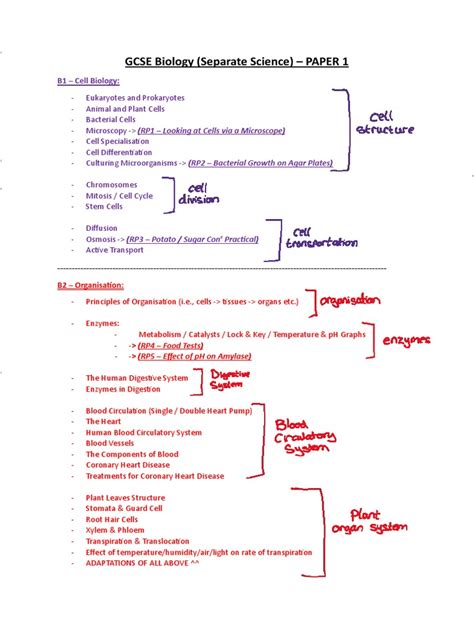 GCSE Biology (Separate Science) – PAPER 1
B1 – Cell Biology:
- Eukaryotes and Prokaryotes
- Animal and Plant Cells
- Bacterial Cells
- Microscopy -> (RP1 – Looking at Cells via a Microscope)
- Cell Specialisation
- Cell Differentiation
- Culturing Microorganisms -> (RP2 – Bacterial Growth on Agar Plates)
cell
structure
- Chromosomes
- Mitosis / Cell Cycle
- Stem Cells
cell
division
- Diffusion
- Osmosis -> (RP3 – Potato / Sugar Conc Practical)
- Active Transport
cell
transportation
B2 – Organisation:
- Principles of Organisation (i.e., cells -> tissues -> organs etc.)
organisation
- Enzymes:
- Metabolism / Catalysts / Lock & Key / Temperature & pH Graphs
- -> (RP4 – Food Tests)
- -> (RP5 – Effect of pH on Amylase)
enzymes
- The Human Digestive System
- Enzymes in Digestion
Digestive
System
- Blood Circulation (Single / Double Heart Pump)
- The Heart
- Human Blood Circulatory System
- Blood Vessels
- The Components of Blood
- Coronary Heart Disease
- Treatments for Coronary Heart Disease
Blood
Circulatory
System
- Plant Leaves Structure
- Stomata & Guard Cell
- Root Hair Cells
- Xylem & Phloem
- Transpiration & Translocation
- Effect of temperature/humidity/air/light on rate of transpiration
- ADAPTATIONS OF ALL ABOVE ^^
Plant
organ system